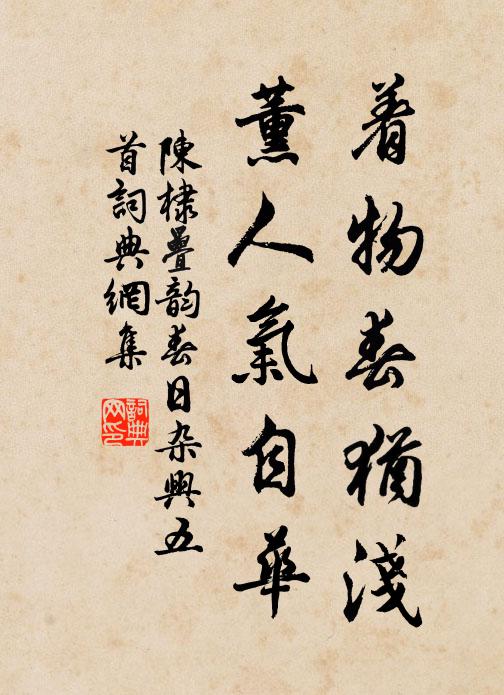 着物春猶淺
薰人氣自華
陳棣疊韵春日杂興五
首詞典網集
詞典網印